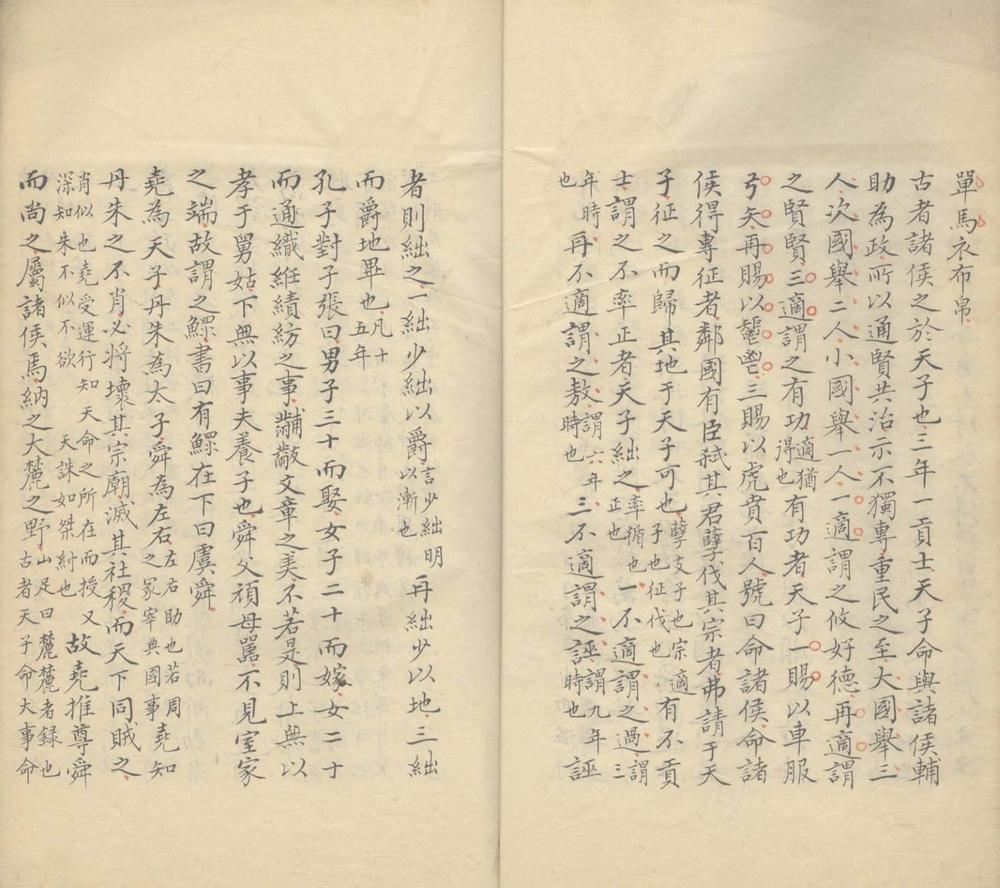 單馬衣布帛
古者諸侯之於天子也三年一貢士天子命與諸侯輔
助為政所以通賢共治示不獨專重民之至大國舉三
人次國舉二人小國舉一人一適謂之攸好德再適謂
之賢賢三適謂之有功適猶得也有功者天子一賜以車服
弓矢再賜以鬯三賜以虎賁百人號曰命諸侯命諸
侯得專征者鄰國有臣弒其君孽伐其宗者弗請于天
子征之而歸其地于天子可也孽支子也宗適子也征伐也有不貢
士謂之不率正者天子絀之率循也正也不適謂之過謂三
年時也再不適謂之敖謂六年時也三不適謂之誣謂九年時也誣
者則絀之一絀少絀以爵言少絀明以漸也再絀少以地三絀
而爵地畢也凡十五年
孔子對子張曰男子三十而娶女子二十而嫁女二十
而通織紝績紡之事黼黻文章之美不若是則上無以
孝于舅姑下無以事夫養子也舜父頑母嚚不見室家
之端故謂之鰥書曰有鰥在下曰虞舜
堯為天子丹朱為太子舜為左右左右助也若周之冢宰典國事堯知
丹朱之不肖必將壞其宗廟滅其社稷而天下同賊之
肖似也堯受運行知天命之所在而授又深知朱不似不欲天誅如桀紂也故堯推尊舜
而尚之屬諸侯焉納之大麓之野山足曰麓麓者錄也古者天子命大事命